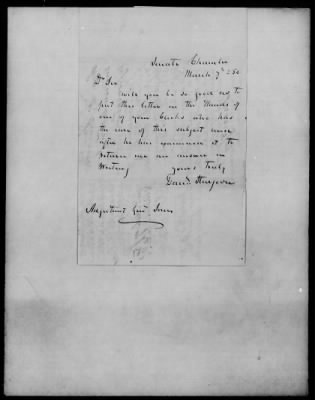 Senate Chamber
March 7th 50
Dr Sir
Will you be so good as to
put this letter in the Hands of
one of your Clerks who has
the care of this subject and
after he has examined it to
return me an answer in
Writing
Yours truly
Danl. Sturgeon
Adjutant Genl Jones